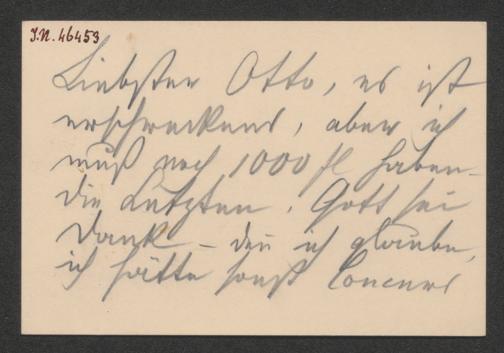 J.N. 46453
Liebster Otto, es ist
erschreckend, aber ich
muß noch 1000 fl haben –
die Letzten. Gott sei
Dank – den ich glaube,
ich hätte sonst Concurs